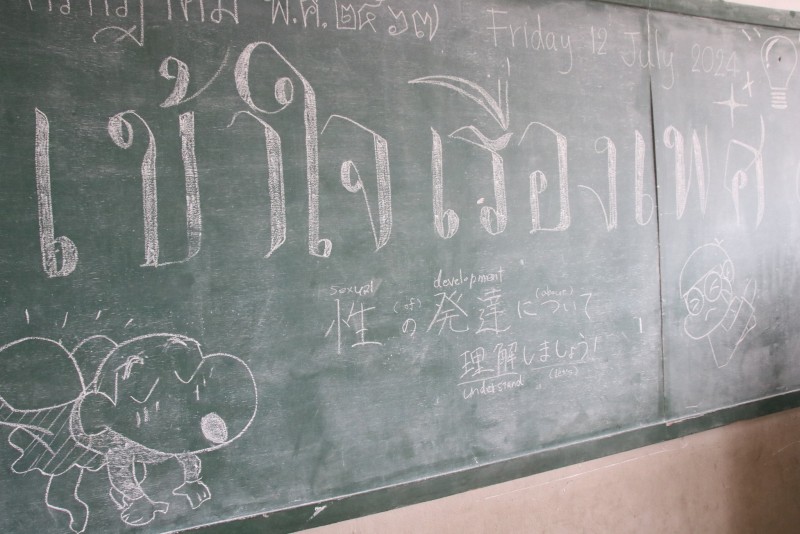 กรกฎาคม พ.ศ. ๒๕๖๗ Friday 12 July 2024
เข้าใจเรื่องเพศ
sexual development
性の発達について
(of) (about)
理解しましょう!
understand (let's)